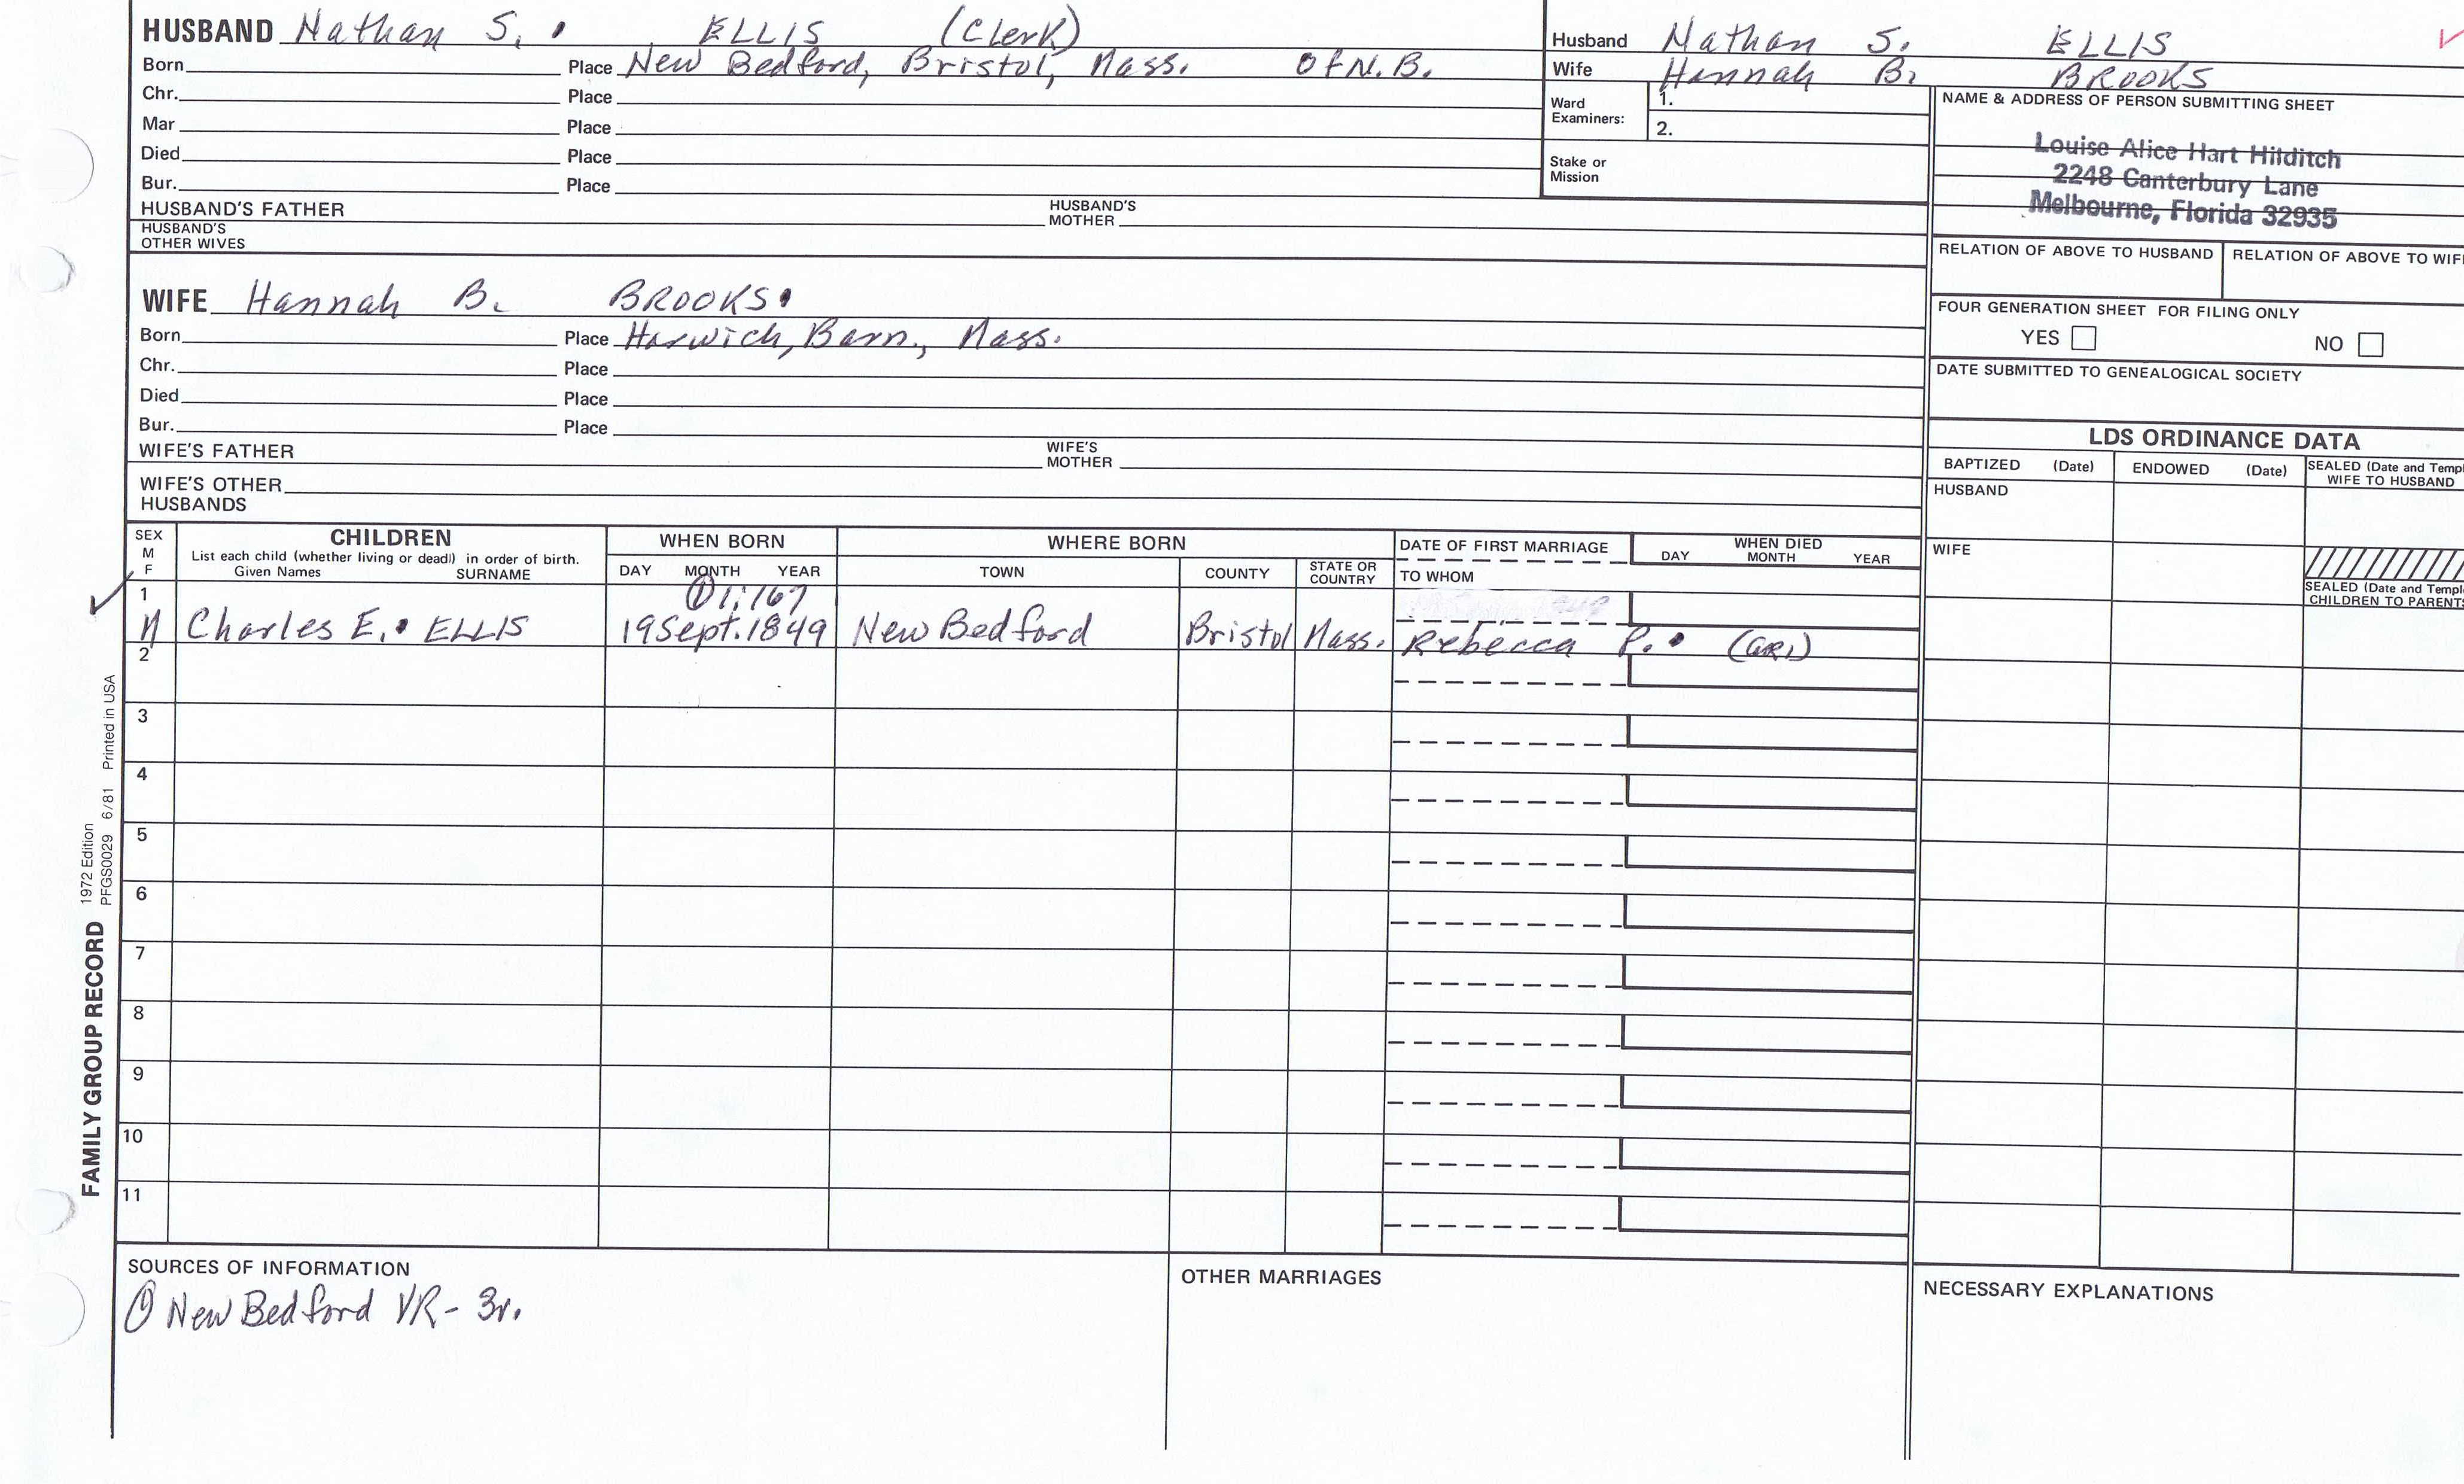 HUSBAND Nathan S. ELLIS (Clerk)
Born Place New Bedford, Bristol, Mass. Of N.B.
Chr. Place
Mar Place
Died Place
Bur. Place
HUSBAND'S FATHER HUSBAND'S MOTHER
HUSBAND'S OTHER WIVES
Husband Nathan S. ELLIS
Wife Hannah B. BROOKS
Ward Examiners: 1.
2.
Stake or Mission
NAME & ADDRESS OF PERSON SUBMITTING SHEET
Louise Alice Hart Hilditch
2248 Canterbury Lane
Melbourne, Florida 32935
RELATION OF ABOVE TO HUSBAND RELATION OF ABOVE TO WIF
FOUR GENERATION SHEET FOR FILING ONLY
YES NO
DATE SUBMITTED TO GENEALOGICAL SOCIETY
WIFE Hannah B. BROOKS
Born Place Harwich, Barn., Mass.
Chr. Place
Died Place
Bur. Place
WIFE'S FATHER WIFE'S MOTHER
WIFE'S OTHER HUSBANDS
LDS ORDINANCE DATA
BAPTIZED (Date) ENDOWED (Date) SEALED (Date and Templ
WIFE TO HUSBAND
HUSBAND
WIFE
SEALED (Date and Templ
CHILDREN TO PARENTS
SEX M F CHILDREN WHEN BORN WHERE BORN DATE OF FIRST MARRIAGE WHEN DIED
List each child (whether living or dead) in order of birth.
Given Names SURNAME DAY MONTH YEAR TOWN COUNTY STATE OR COUNTRY TO WHOM DAY MONTH YEAR
① 1:167
1 M Charles E. ELLIS 19 Sept. 1849 New Bedford Bristol Mass. Rebecca P. (GR1)
2
3
4
5
6
7
8
9
10
11
FAMILY GROUP RECORD 1972 Edition
PFGS0029 6/81 Printed in USA
SOURCES OF INFORMATION
① New Bedford VR - 3v.
OTHER MARRIAGES
NECESSARY EXPLANATIONS